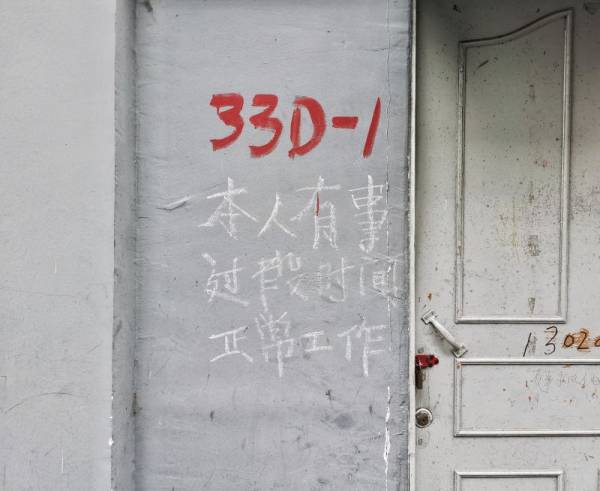 33D-1
本人有事
过段时间
正常工作